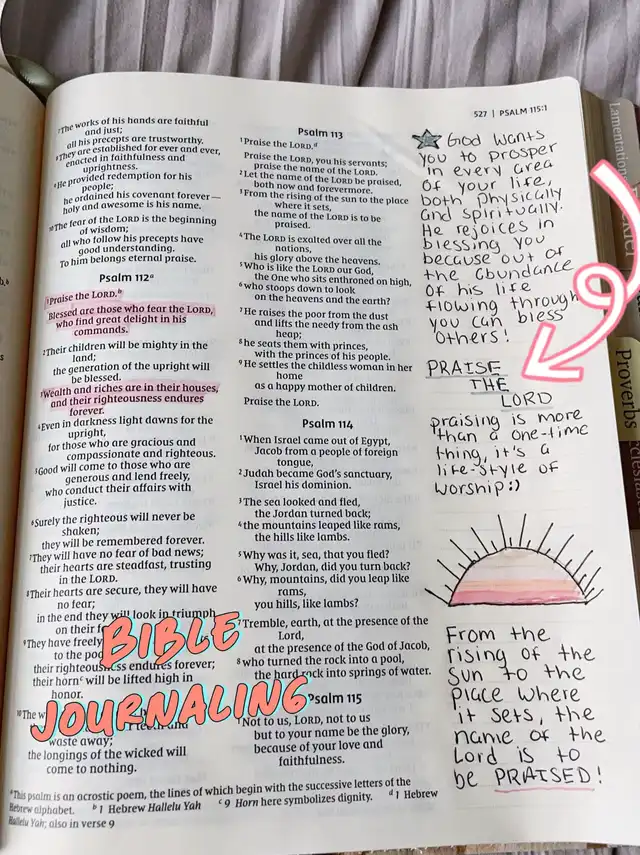 527 | PSALM 115:1
⁷The works of his hands are faithful
and just;
all his precepts are trustworthy.
⁸They are established for ever and ever,
enacted in faithfulness and
uprightness.
⁹He provided redemption for his
people;
he ordained his covenant forever—
holy and awesome is his name.
¹⁰The fear of the LORD is the beginning
of wisdom;
all who follow his precepts have
good understanding.
To him belongs eternal praise.
Psalm 112ᵃ
¹Praise the LORD.ᵇ
Blessed are those who fear the LORD,
who find great delight in his
commands.
²Their children will be mighty in the
land;
the generation of the upright will
be blessed.
³Wealth and riches are in their houses,
and their righteousness endures
forever.
⁴Even in darkness light dawns for the
upright,
for those who are gracious and
compassionate and righteous.
⁵Good will come to those who are
generous and lend freely,
who conduct their affairs with
justice.
⁶Surely the righteous will never be
shaken;
they will be remembered forever.
⁷They will have no fear of bad news;
their hearts are steadfast, trusting
in the LORD.
⁸Their hearts are secure, they will have
no fear;
in the end they will look in triumph
on their
⁹They have freely
to the
their righteousness endures forever;
their hornᶜ will be lifted high in
honor.
¹⁰The
teeth and
waste away;
the longings of the wicked will
come to nothing.
Psalm 113
¹Praise the LORD.ᵈ
Praise the LORD, you his servants;
praise the name of the LORD.
²Let the name of the LORD be praised,
both now and forevermore.
³From the rising of the sun to the place
where it sets,
the name of the LORD is to be
praised.
⁴The LORD is exalted over all the
nations,
his glory above the heavens.
⁵Who is like the LORD our God,
the One who sits enthroned on high,
⁶who stoops down to look
on the heavens and the earth?
⁷He raises the poor from the dust
and lifts the needy from the ash
heap;
⁸he seats them with princes,
with the princes of his people.
⁹He settles the childless woman in her
home
as a happy mother of children.
Praise the LORD.
Psalm 114
¹When Israel came out of Egypt,
Jacob from a people of foreign
tongue,
²Judah became God's sanctuary,
Israel his dominion.
³The sea looked and fled,
the Jordan turned back;
⁴the mountains leaped like rams,
the hills like lambs.
⁵Why was it, sea, that you fled?
Why, Jordan, did you turn back?
⁶Why, mountains, did you leap like
rams,
you hills, like lambs?
⁷Tremble, earth, at the presence of the
Lord,
at the presence of the God of Jacob,
⁸who turned the rock into a pool,
the hard rock into springs of water.
Psalm 115
¹Not to us, LORD, not to us
but to your name be the glory,
because of your love and
faithfulness.
ᵃThis psalm is an acrostic poem, the lines of which begin with the successive letters of the
Hebrew alphabet. ᵇ 1 Hebrew Hallelu Yah ᶜ 9 Horn here symbolizes dignity. ᵈ 1 Hebrew
Hallelu Yah; also in verse 9
God wants
you to prosper
in every area
of your life,
both physically
and spiritually.
He rejoices in
blessing you
because out of
the abundance
of his life
flowing through
you can bless
others!
PRAISE
THE
LORD
praising is more
than a one-time
thing, it's a
life-style of
worship:)
From the
rising of the
Sun to the
place where
it sets, the
name of the
Lord is to
be PRAISED!
BIBLE
JOURNALING
Lamentations
Proverbs